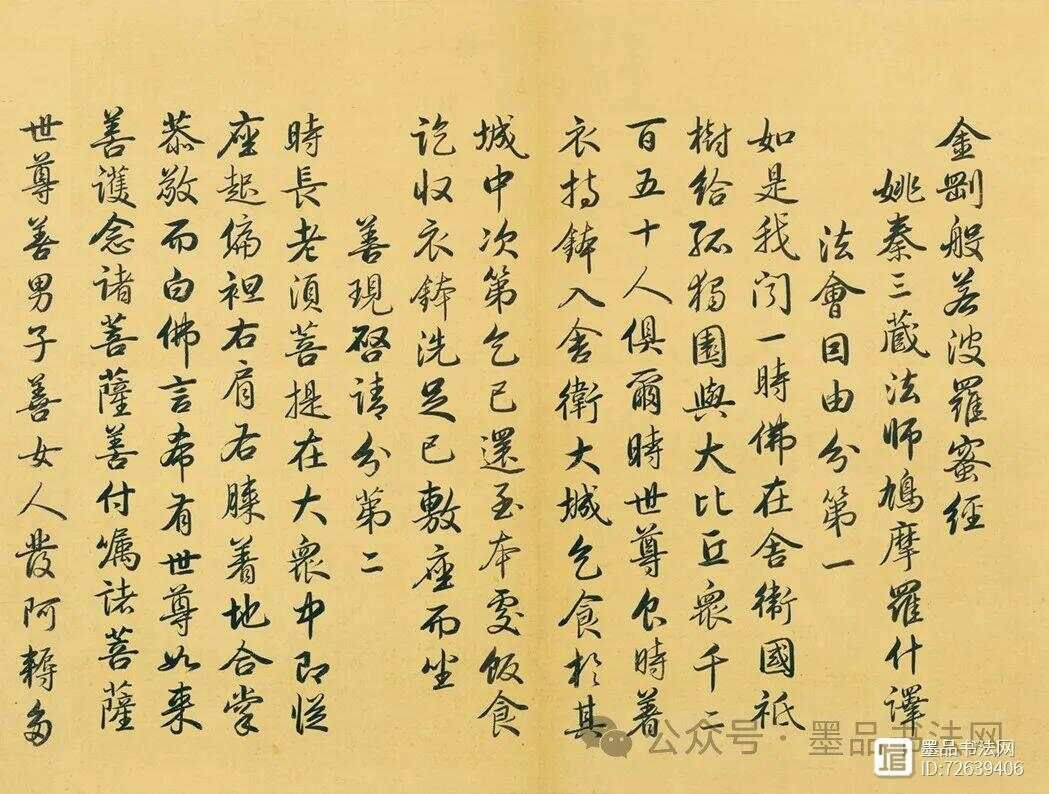 金剛般若波羅蜜經
姚秦三藏法師鳩摩羅什譯
法會因由分第一
如是我聞一時佛在舍衛國祇
樹給孤獨園與大比丘衆千二
百五十人俱爾時世尊食時着
衣持鉢入舍衛大城乞食於其
城中次第乞已還至本處飯食
訖收衣鉢洗足已敷座而坐
善現啓請分第二
時長老須菩提在大衆中即從
座起偏袒右肩右膝着地合掌
恭敬而白佛言希有世尊如来
善護念諸菩薩善付嘱諸菩薩
世尊善男子善女人發阿耨多
公众号·墨品书法网
墨品书法网
ID:72639406